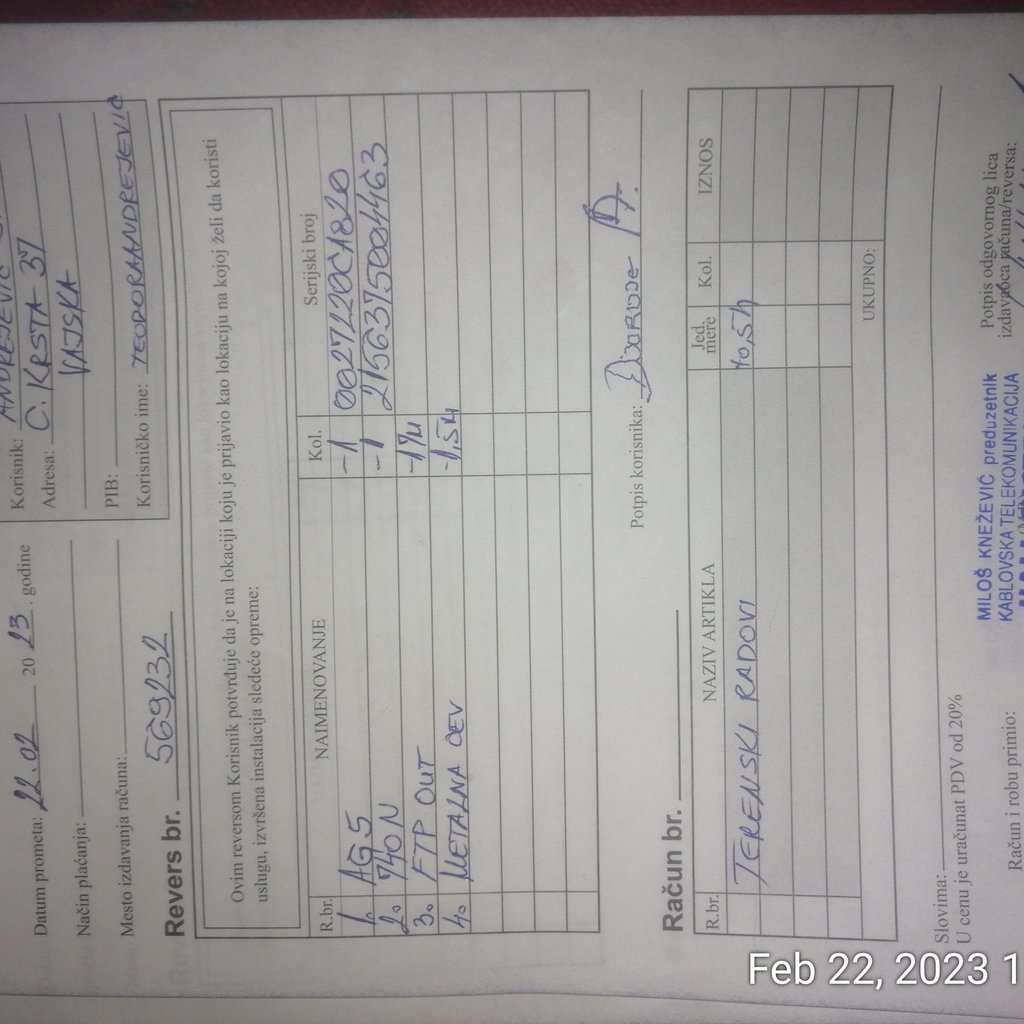 Datum prometa: 22.02 20 23. godine
Način plaćanja:
Mesto izdavanja računa:
Korisnik: ANDREJEVIĆ
Adresa: C. KRSTA 37
VAJSKA
PIB:
Korisničko ime: TEODORAANDREJEVIC
Revers br. 569232
Ovim reversom Korisnik potvrđuje da je na lokaciji koju je prijavio kao lokaciju na kojoj želi da koristi
uslugu, izvršena instalacija sledeće opreme:
R.br. NAIMENOVANJE Kol. Serijski broj
1. AG5 -1 0027220CA820
2. 740N -1 2156375004463
3. FTP OUT -17M
4. METALNA CEV -1,5M
Potpis korisnika:
Račun br.
R.br. NAZIV ARTIKLA Jed. mere Kol. IZNOS
TERENSKI RADOVI
UKUPNO:
Slovima:
U cenu je uračunat PDV od 20%
Račun i robu primio:
MILOŠ KNEŽEVIĆ preduzetnik
KABLOVSKA TELEKOMUNIKACIJA
Potpis odgovornog lica
izdavaoca računa/reversa:
Feb 22, 2023 1